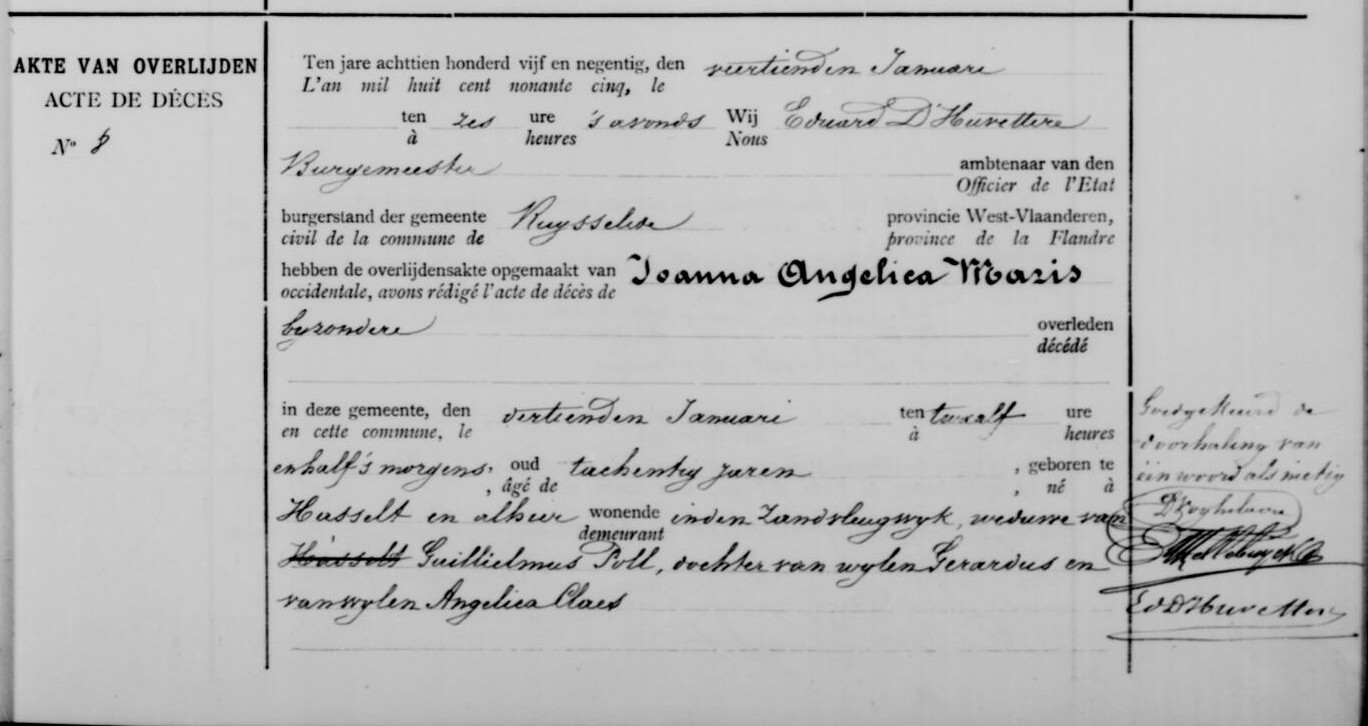 AKTE VAN OVERLIJDEN
ACTE DE DÉCÈS
N° 8
Ten jare achttien honderd vijf en negentig, den veertienden Januari
L'an mil huit cent nonante cinq, le
ten zes ure 's avonds Wij Eduard D'Huvettere
à heures Nous
Burgemeester ambtenaar van den
Officier de l'Etat
burgerstand der gemeente Ruysselede provincie West-Vlaanderen,
civil de la commune de province de la Flandre
hebben de overlijdensakte opgemaakt van Joanna Angelica Maris
occidentale, avons rédigé l'acte de décès de
byzondere overleden
décédé
in deze gemeente, den vertienden Januari ten twaalf ure
en cette commune, le à heures
en half 's morgens, oud tachentig jaren, geboren te
, âgé de , né à
Hasselt en alhier wonende in den Zandvleugwyk, weduwe van
demeurant
Hasselt Guillielmus Poll, dochter van wylen Gerardus en
van wylen Angelica Claes
Goedgekeurd de
doorhaling van
één woord als nietig
Ed D'Huvettere